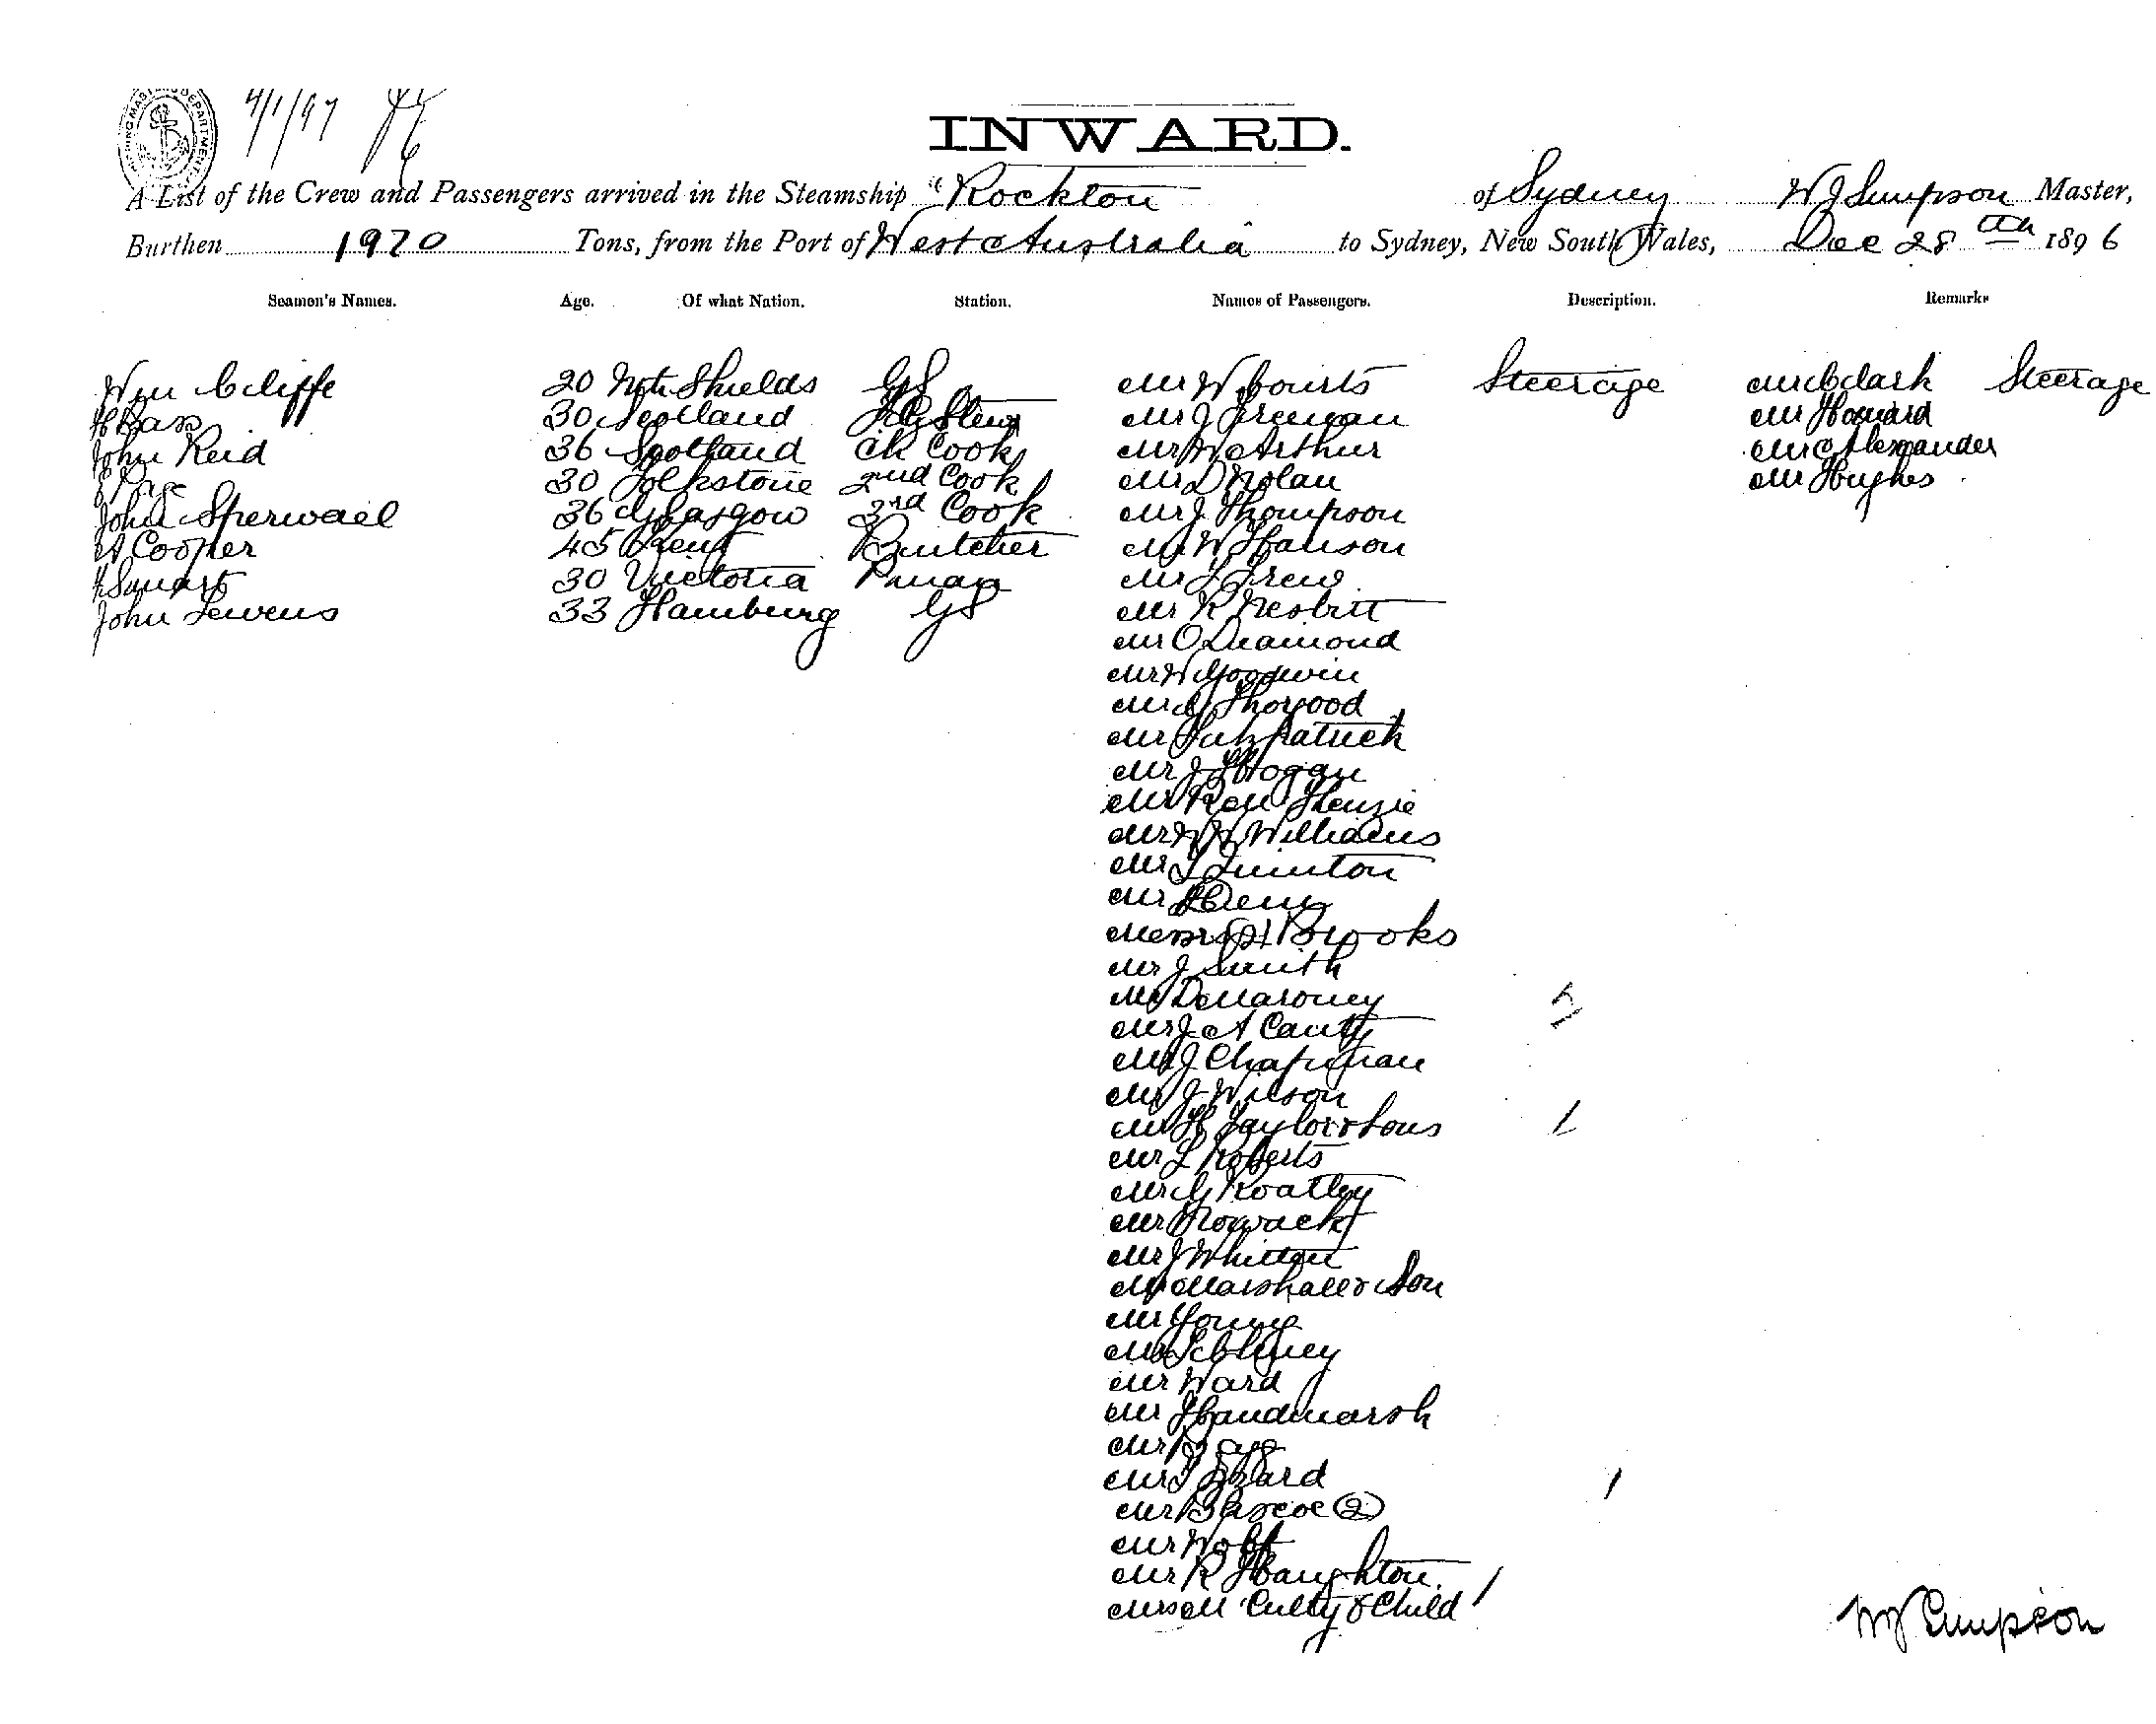 SHIPPING MASTER'S DEPARTMENT
4/1/97
INWARD.
A List of the Crew and Passengers arrived in the Steamship "Rockton of Sydney W J Simpson Master,
Burthen 1970 Tons, from the Port of West Australia to Sydney, New South Wales, Dec 28th 1896
Seamen's Names. Age. Of what Nation. Station. Names of Passengers. Description. Remarks
Wm Cliffe 20 Nth Shields GS Mr W Courts Steerage Mr Clark Steerage
H Bass 30 Scotland Mr J Freeman Mr Howard
John Reid 36 Scotland Ch Cook Mr W Arthur Mr Alexander
E Page 30 Folkstone 2nd Cook Mr D Nolan Mr Hughes
John Sherwael 36 Glasgow 3rd Cook Mr J Thompson
A Cooper 45 Kent Butcher Mr W Hanson
H Smart 30 Victoria Pman Mr T Frew
John Lewens 33 Hamburg GS Mr R Nesbitt
Mr O Diamond
Mr W Goodwin
Mr G Thorgood
Mr Fitzpatrick
Mr J Hogan
Mr Ron Henzie
Mr W W Williams
Mr T Quinton
Mr Deny
Messrs Brooks
Mr J Smith
Mr D Maroney
Mr J A Canty
Mr J Chapman
Mr J Wilson
Mr H Taylor & Sons
Mr L Roberts
Mr G Koatley
Mr Nowack
Mr J Whitton
Mr Marshall & Son
Mr Young
Mr
Mr Ward
Mr Handmarsh
Mr Bagg
Mr T Izzard
Mr B Pascoe (2)
Mr Wolf
Mr R Haughton
Mrs M Culty & Child 1
W J Simpson